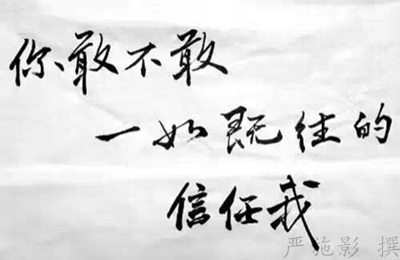 你敢不敢
一如既往的
信任我
严施影 撰